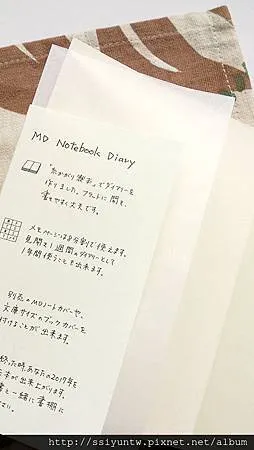 MD Notebook Diary
"糸かがり製本"でダイアリーを
作りました。フラットに開き、
書きやすく丈夫です。
メモページは8分割で使えます。
見開き1週間のダイアリーとして
1年間使うことも出来ます。
別売のMDノートカバーや、
文庫サイズのブックカバーを
付けることが出来ます。
終った時、あなたの2017年を
出来上がります。
書と一緒に書棚に
さい。
http://ssiyuntw.pixnet.net/album